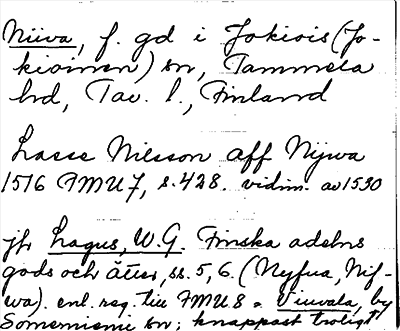 Niiva, f. gd i Jokiois (Jo-
kioinen) sn, Tammela
hd, Tav. l., Finland
Lasse Nilsson aff Nijwa
1516 FMU 7, s. 428. vidim. av 1530
jfr Lagus, W.G. Finska adelns
gods och ätter, ss. 5, 6. (Nyfua, Nif-
wa). enl. reg. till FMU 8 = Viuvala, by
Somerniemi sn; knappast troligt